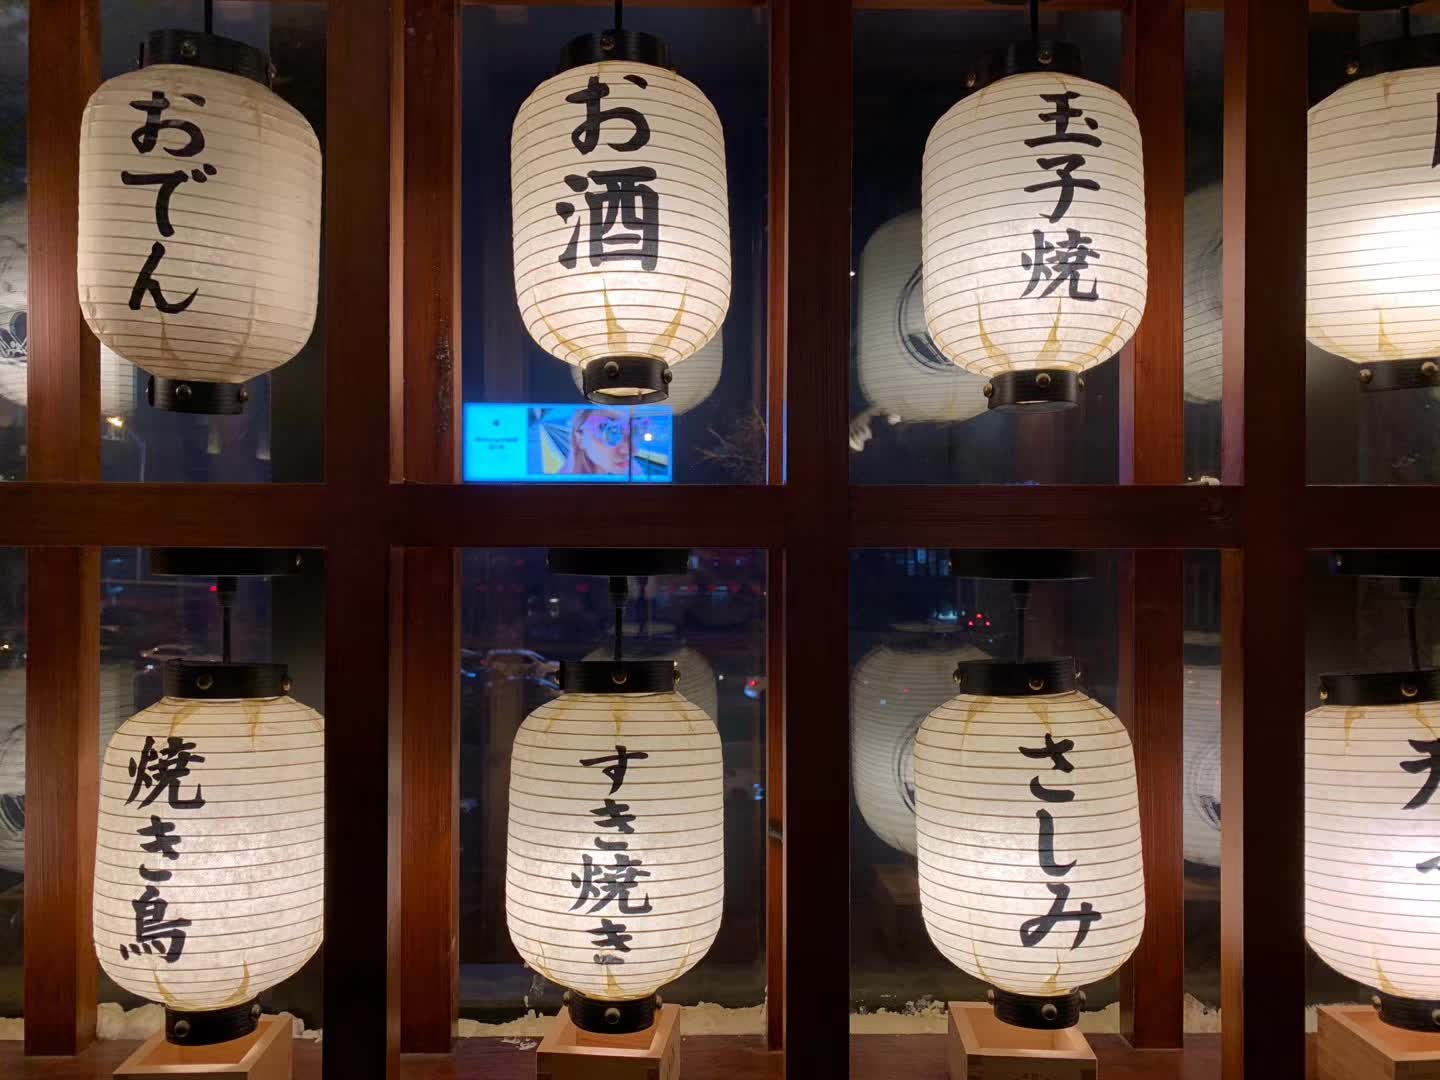 おでん
お酒
玉子焼
焼き鳥
すき焼き
さしみ